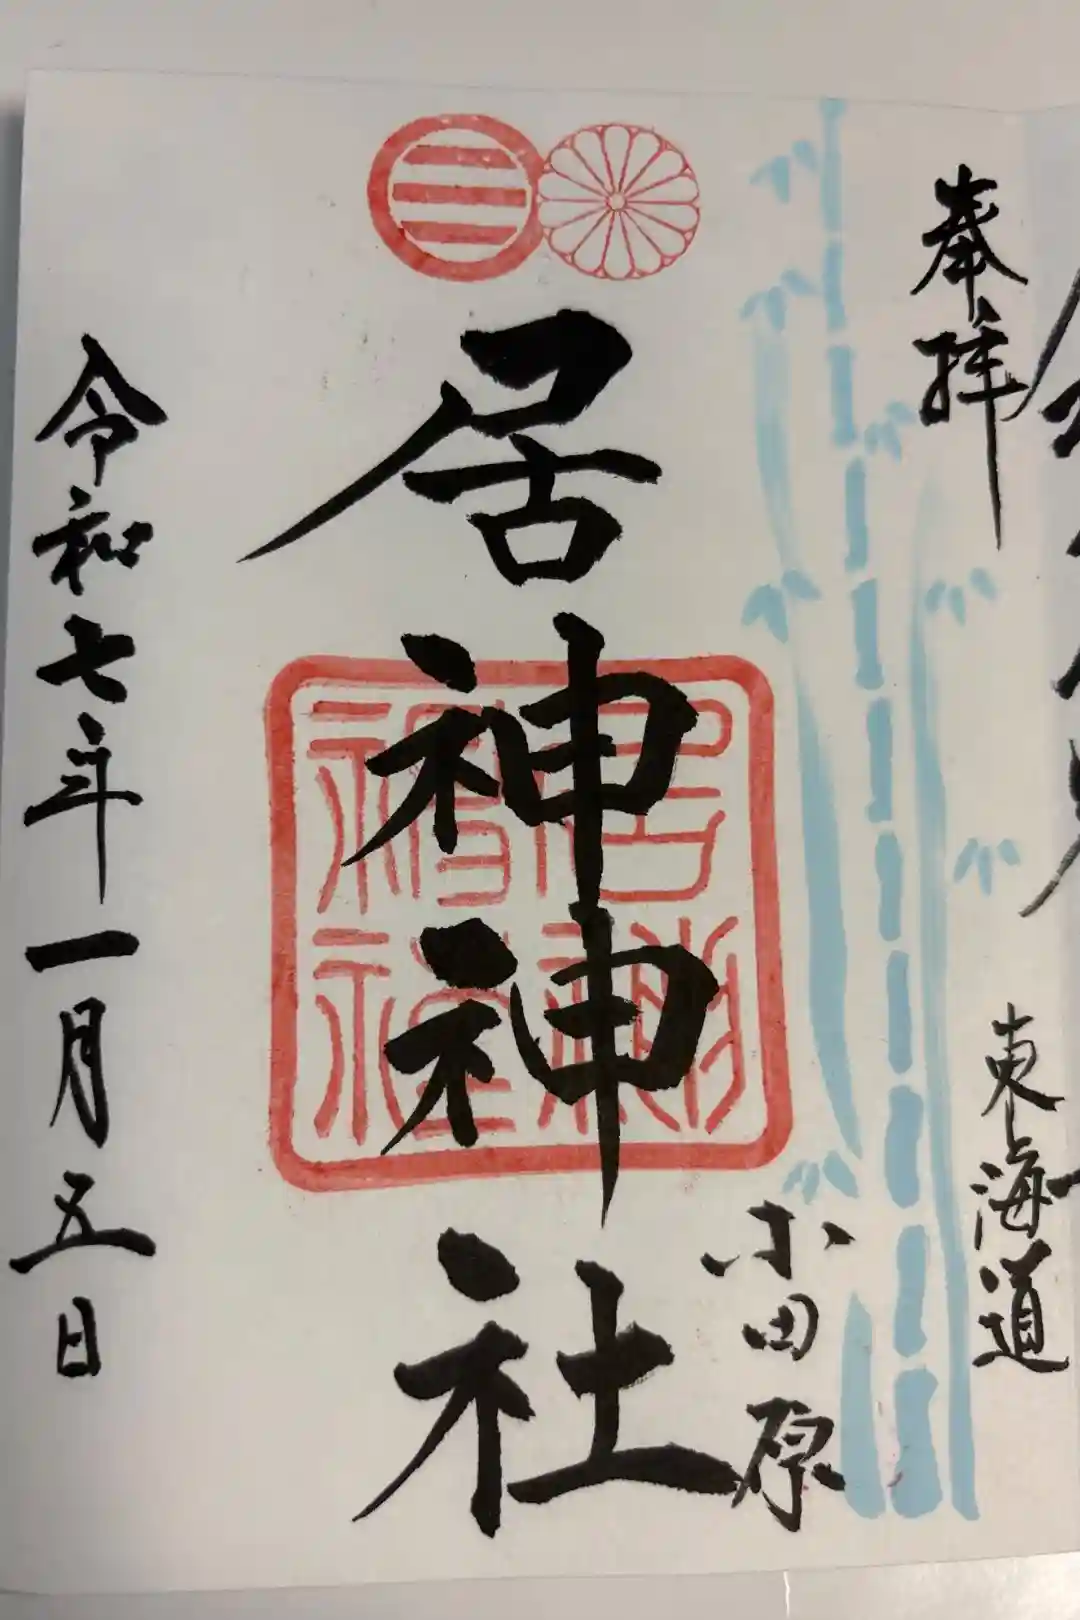 奉拝
東海道
小田原
居神神社
令和七年一月五日